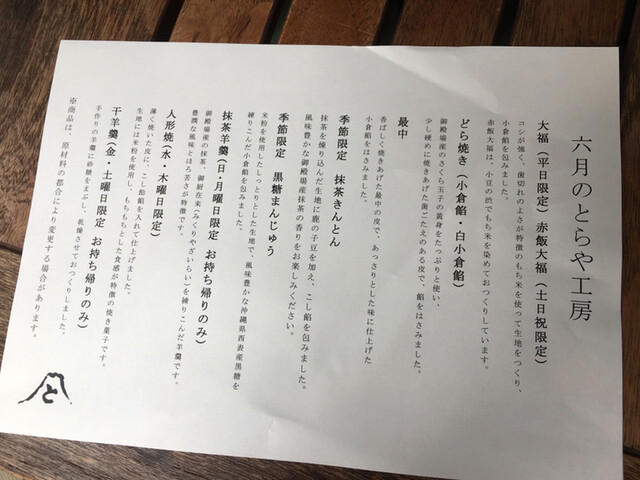 六月のとらや工房
大福（平日限定）赤飯大福（土日祝限定）
コシが強く、歯切れのよさが特徴のもち米を使って生地をつくり、
小倉餡を包みました。
赤飯大福は、小豆の渋でもち米を染めておつくりしています。
どら焼き（小倉餡・白小倉餡）
御殿場産のさくら玉子の黄身をたっぷりと使い、
少し硬めに焼きあげた歯ごたえのある皮で、餡をはさみました。
最中
香ばしく焼きあげた最中の皮で、あっさりとした味に仕上げた
小倉餡をはさみました。
季節限定 抹茶きんとん
抹茶を練り込んだ生地に鹿の子豆を加え、こし餡を包みました。
風味豊かな御殿場産抹茶の香りをお楽しみください。
季節限定 黒糖まんじゅう
米粉を使用したしっとりとした生地で、風味豊かな沖縄県西表産黒糖を
練りこんだ小倉餡を包みました。
抹茶羊羹（日・月曜日限定 お持ち帰りのみ）
御殿場産の抹茶、御厨在来（みくりやざいらい）を練りこんだ羊羹です。
豊潤な風味とほろ苦さが特徴です。
人形焼（水・木曜日限定）
薄く焼いた皮に、こし餡を入れて仕上げました。
生地には米粉を使用し、もちもちとした食感が特徴の焼き菓子です。
干羊羹（金・土曜日限定 お持ち帰りのみ）
手作りの羊羹に砂糖をまぶし、乾燥させておつくりしました。
※商品は、原材料の都合により変更する場合があります。
と